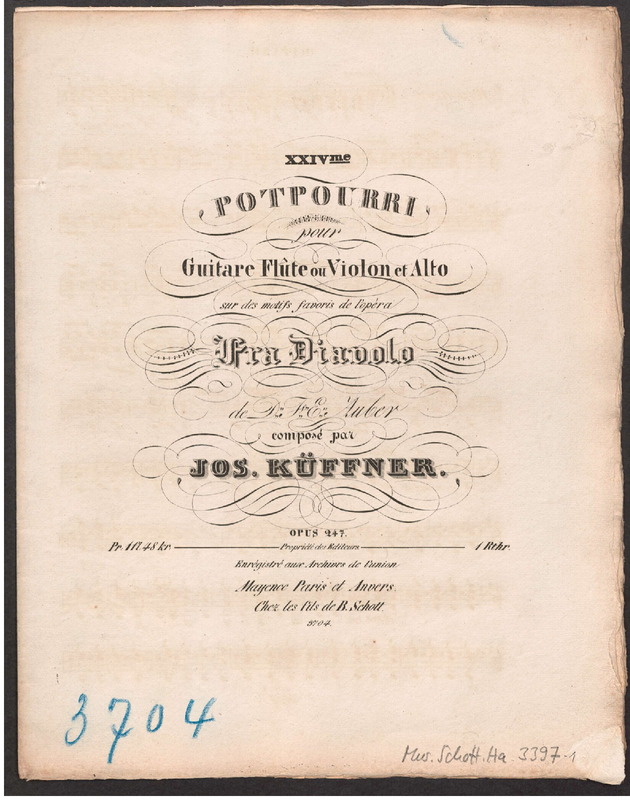 XXIVme
POTPOURRI
pour
Guitare Flûte ou Violon et Alto
sur des motifs favoris de l'opéra
Fra Diavolo
de D. F. E. Auber
composé par
JOS. KÜFFNER.
OPUS 247.
Pr. 1 fl. 48 kr. Propriété des Editeurs 1 Rthr.
Enrégistré aux Archives de l'union
Mayence Paris et Anvers
Chez les fils de B. Schott.
3704.
3704
Mus. Schott. Ha 3397-1